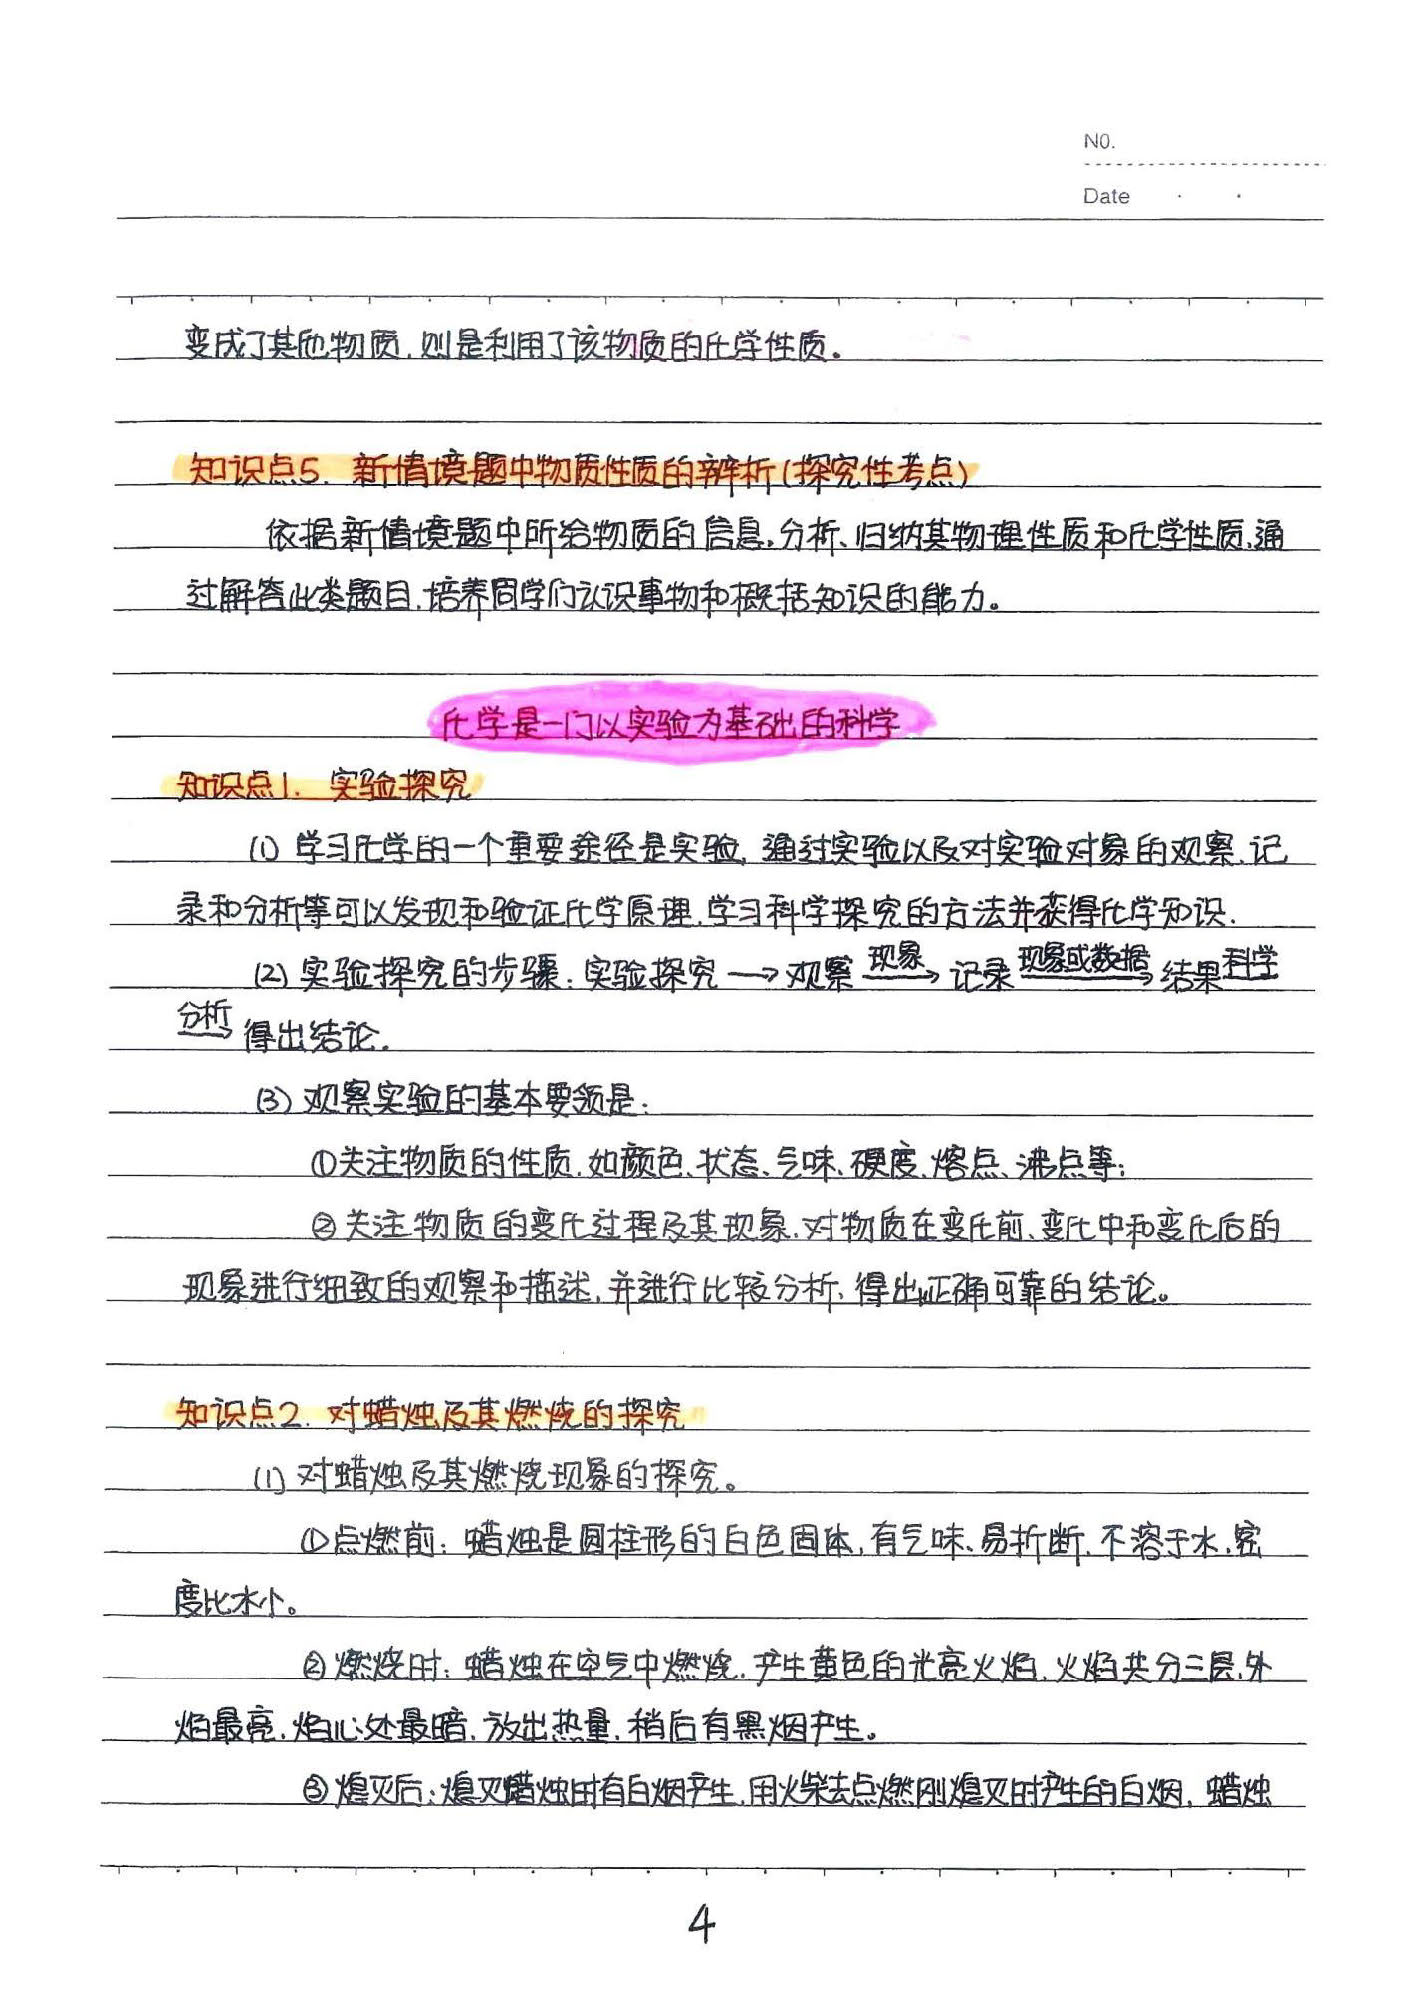 NO.
Date
变成了其他物质,则是利用了该物质的化学性质。
知识点5. 新情境题中物质性质的辨析(探究性考点)
依据新情境题中所给物质的信息,分析、归纳其物理性质和化学性质,通
过解答此类题目,培养同学们认识事物和概括知识的能力。
化学是一门以实验为基础的科学
知识点1. 实验探究
(1) 学习化学的一个重要途径是实验, 通过实验以及对实验对象的观察、记
录和分析等可以发现和验证化学原理,学习科学探究的方法并获得化学知识.
(2) 实验探究的步骤: 实验探究 → 观察 现象→ 记录 现象或数据→ 结果 科学
分析→ 得出结论.
(3) 观察实验的基本要领是:
①关注物质的性质,如颜色、状态、气味、硬度、熔点、沸点等;
②关注物质的变化过程及其现象,对物质在变化前、变化中和变化后的
现象进行细致的观察和描述,并进行比较分析,得出正确可靠的结论。
知识点2. 对蜡烛及其燃烧的探究
(1) 对蜡烛及其燃烧现象的探究。
①点燃前: 蜡烛是圆柱形的白色固体,有气味、易折断、不溶于水,密
度比水小。
②燃烧时: 蜡烛在空气中燃烧,产生黄色的光亮火焰,火焰共分三层,外
焰最亮,焰心处最暗,放出热量,稍后有黑烟产生。
③熄灭后:熄灭蜡烛时有白烟产生,用火柴去点燃刚熄灭时产生的白烟, 蜡烛
4